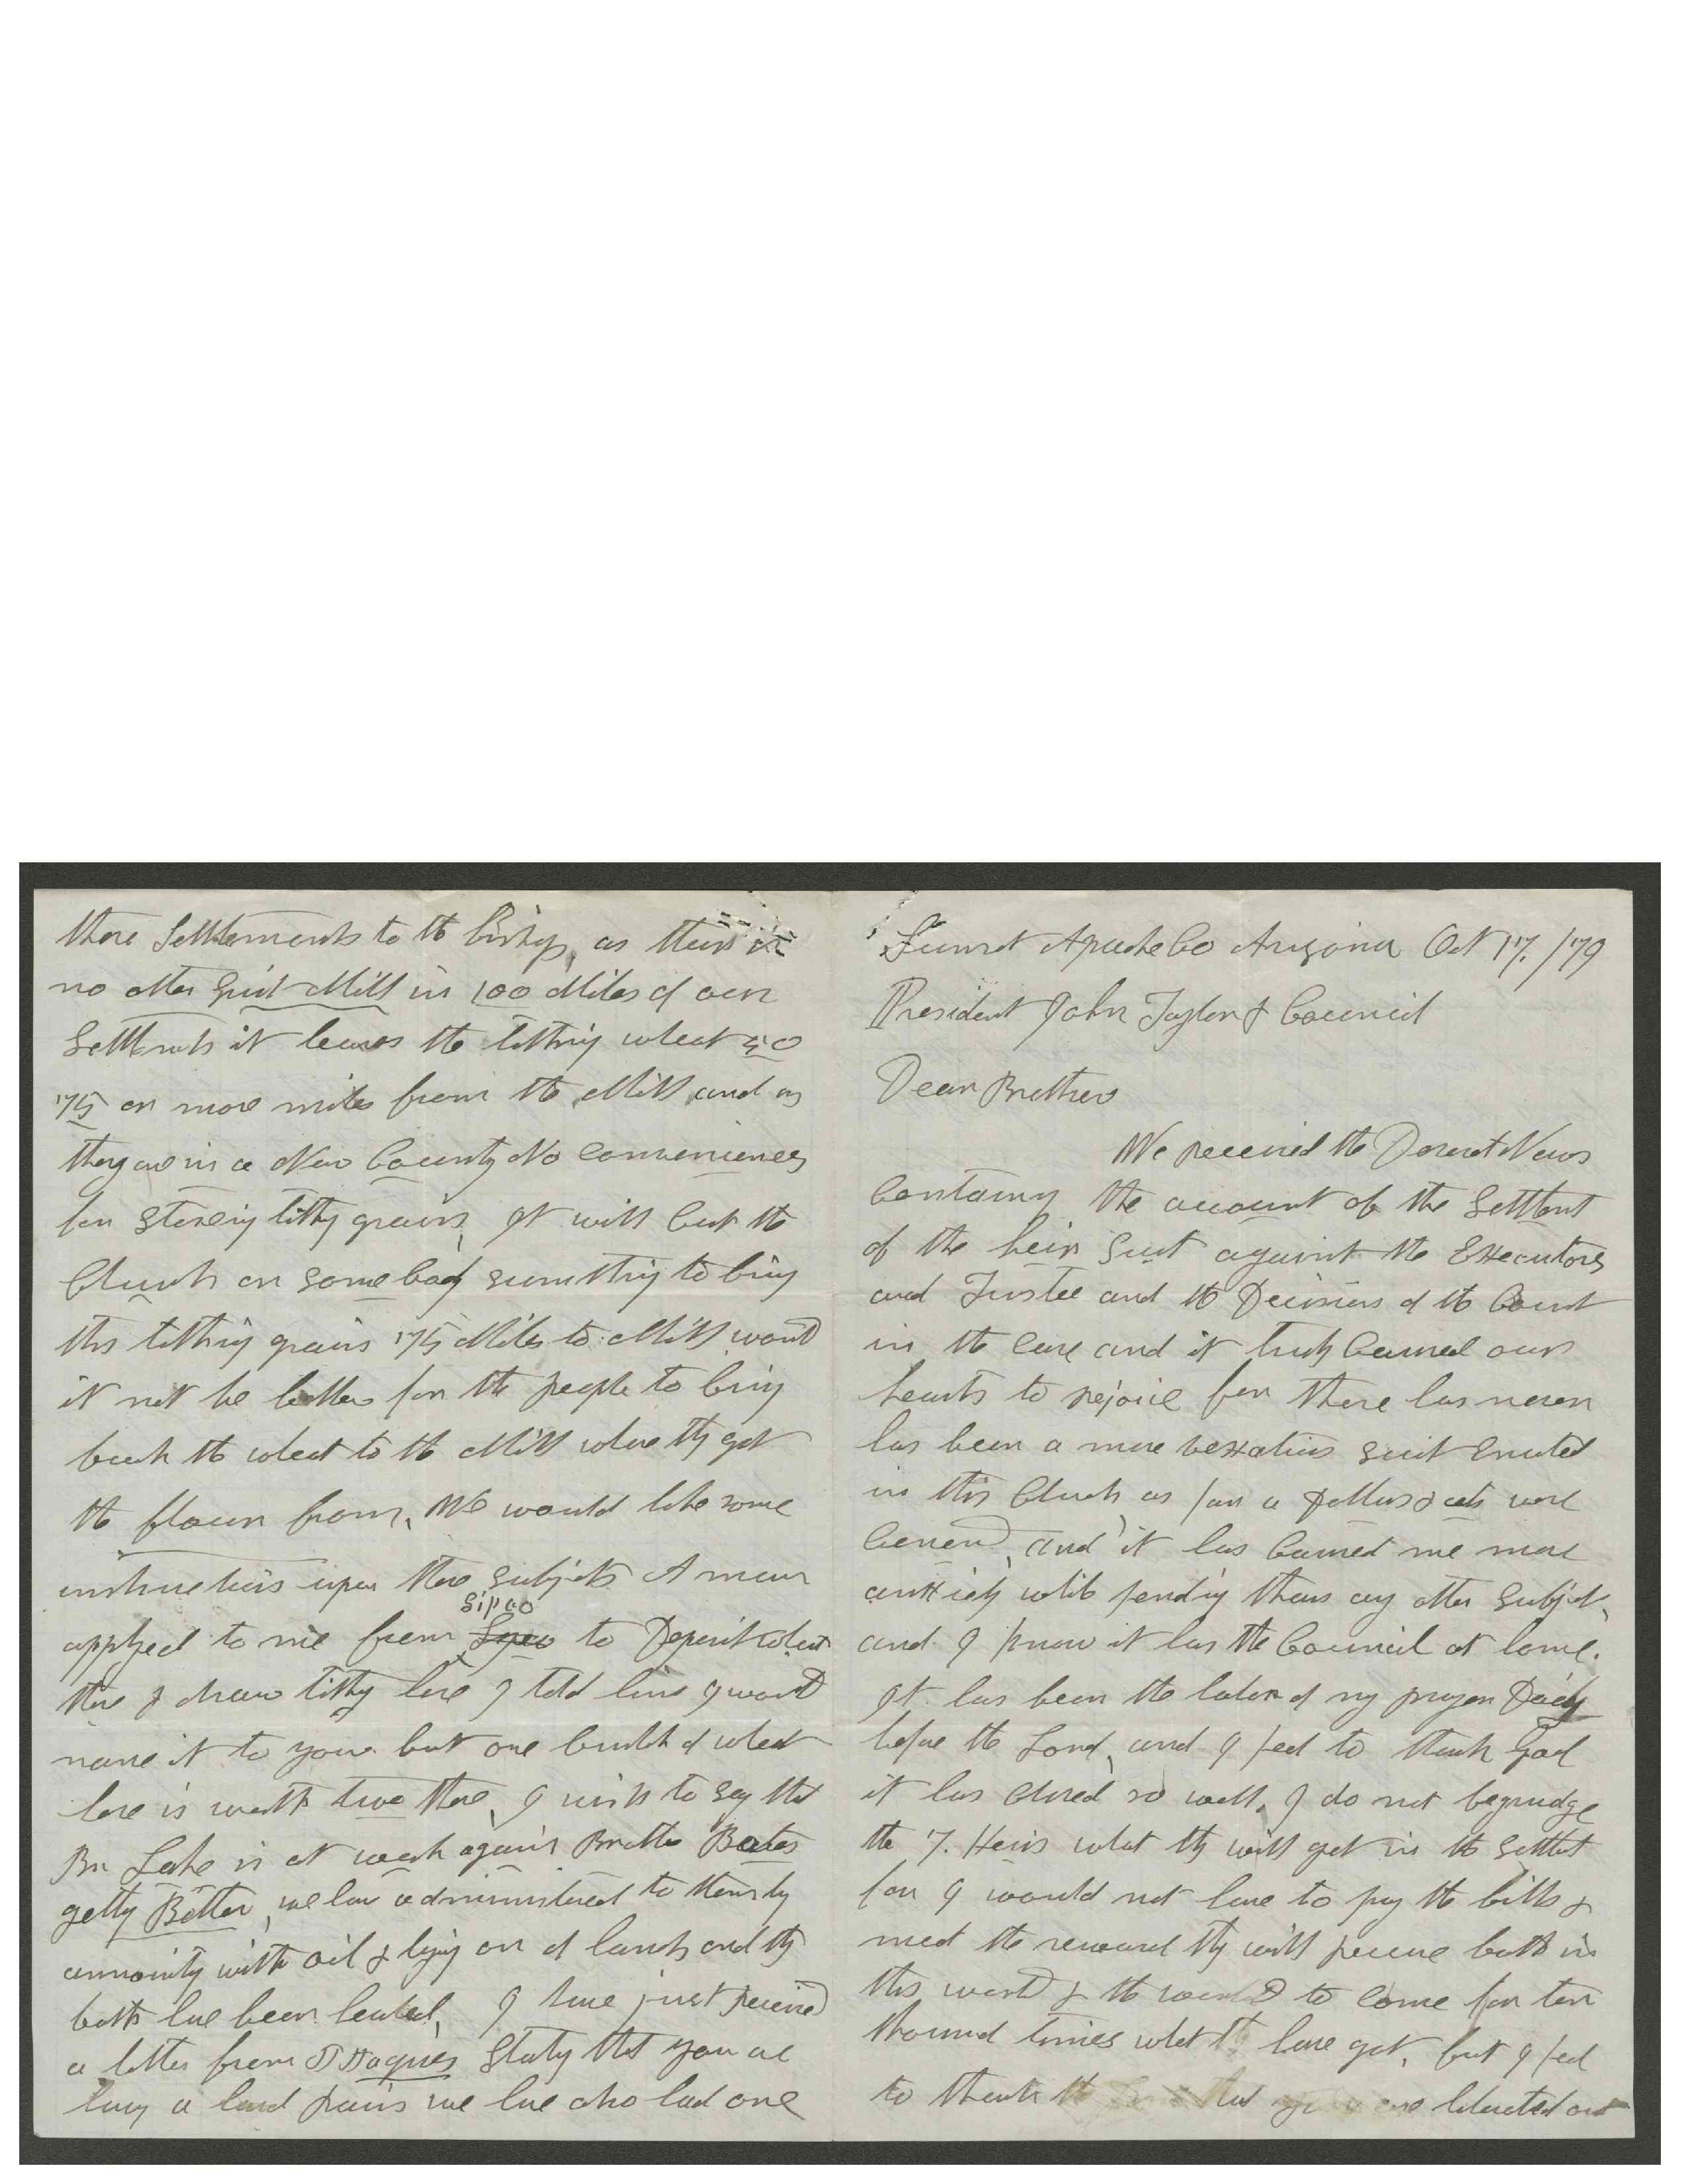 these Settlements to the bishops, as there is
no other Grist Mill in 100 Miles of our
Settlmnts it leaves the tithing wheat 50
75 or more miles from the Mill and as
they are in a New County No Conveniences
for storing tithing grain, It will Cost the
Church or some body sumthing to bring
this tithing grain 75 Miles to Mill would
it not be better for the people to bring
back the wheat to the Mill whare they got
the flour from, We would like some
instructions upon these subjects A man
applyed to me from Sipao to Deposit wheat
there & draw tithing here I told him I would
name it to you but one bushel of wheat
here is worth two there, I wish to say that
Br Lake is at work again Brother Bates
getting Better, we have administered to them by
annointing with oil & laying on of hands and they
both have been healed, I have just received
a letter from J Jaques Stating that you are
having a hard rain we have also had one
Sunset Apache Co Arizona Oct 17, /79
President John Taylor & Council
Dear Brother
We received the Deseret News
Containing the account of the Settlemt
of the heirs Suit against the Executors
and Trustee and the Decision of the Court
in the Case and it truly Caused our
hearts to rejoice for there has never
has been a more vexatious suit Enacted
in this Church as far a Dollars & cts were
Concerned, and it has Caused me more
anxiety while pending than any other Subject,
and I know it has the Council at home.
It has been the labor of my prayer Daily
before the Lord, and I feel to thank God
it has Closed so well. I do not begrudge
the 7. Heirs what they will get in the settlet
for I would not have to pay the bills &
meet the reward they will receive both in
this world & the world to come for ten
thousand times what they have got, but I feel
to thank the Lord that you are liberated out